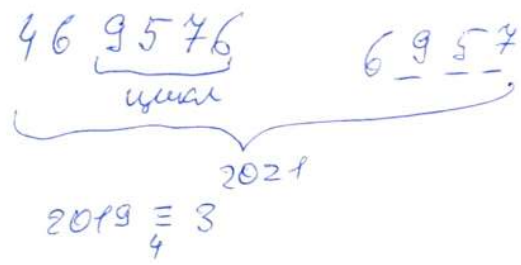 46 9576 6 9 5 7
цикл
2021
2019 ≡ 3
4